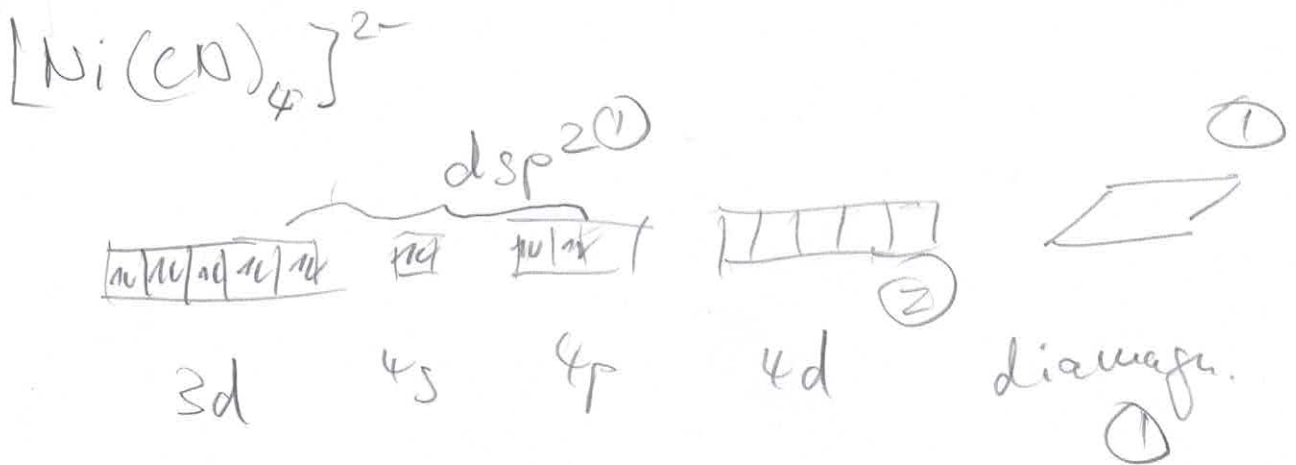 [Ni(CN)₄]²⁻
dsp² ①
①
②
3d 4s 4p 4d diamagn.
①